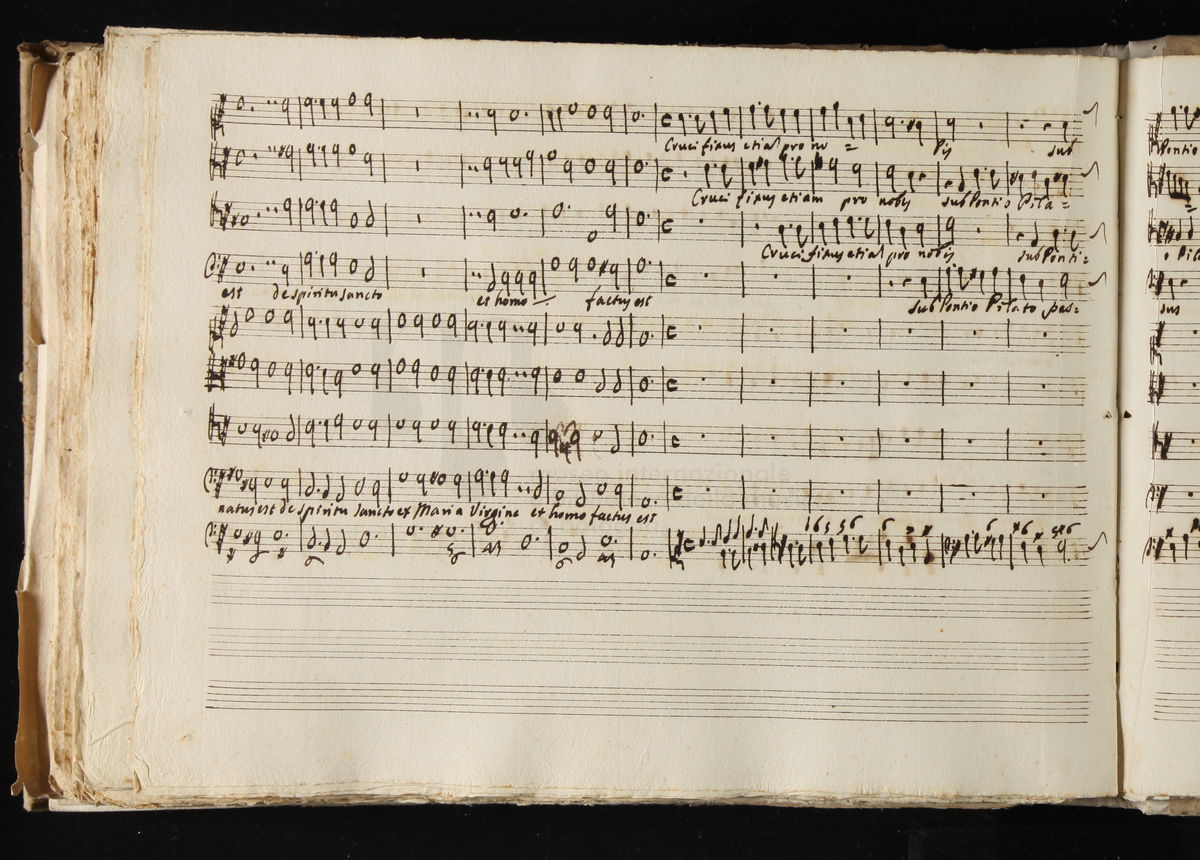 Crucifixus etiam pro no = bis sub
Crucifixus etiam pro nobis sub Pontio Pila =
Crucifixus etiam pro nobis sub Ponti =
est de spiritu sancto et homo factus est sub Pontio Pilato pas =
natus est de spiritu sancto ex Maria Virgine et homo factus est
museo internazionale
6 5 5 6 6 6 6 5 6
Pontio
sus